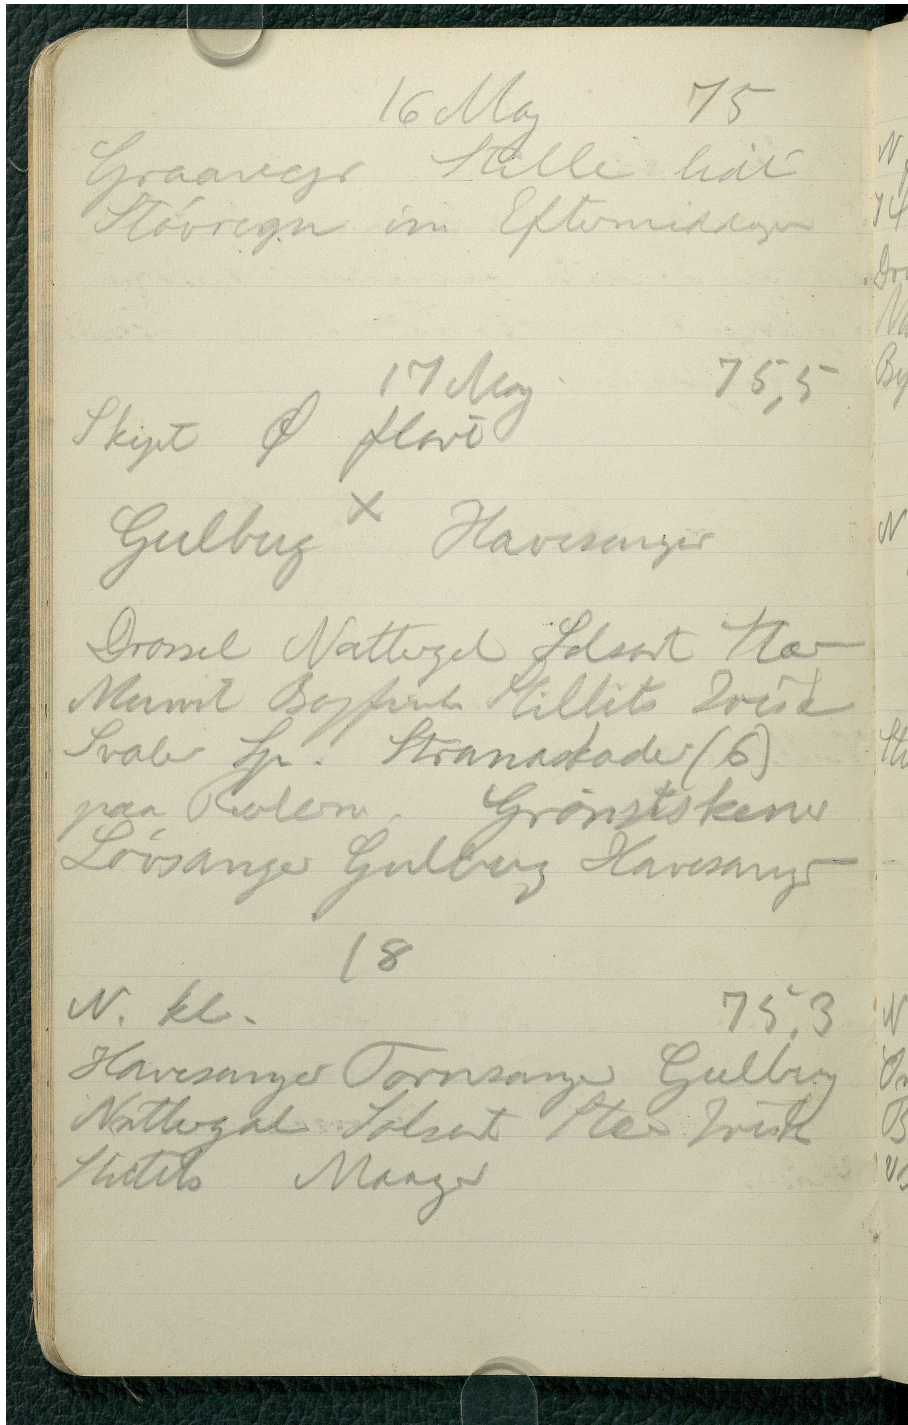 16 May 75
Graavejr Stille lidt
Støvregn im Eftermiddagen
17 May 75,5
Skyet Ø flovt
Gulbug x Havesanger
Drossel Nattergal Solsort Stær
Munk Bogfink Stillits Irisk
Svaler Sp. Strandskader (6)
paa Revlerne. Grønirisken
Løvsanger Gulbug Havesanger
18
N. kl. 75,3
Havesanger Tornsanger Gulbug
Nattergal Solsort Stær Irisk
Stillits Maager